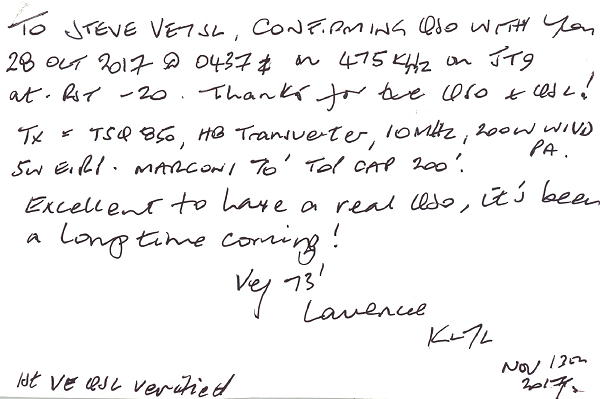 To STEVE VE7SL, CONFIRMING QSO WITH You
28 OCT 2017 @ 0437z on 475 KHz on JT9
at. RST -20. Thanks for the QSO & QSL!
TX = TS 850, HB Transverter, 10MHz, 200W W1VD
PA.
5W EIRP. MARCONI 70' Top CAP 200'.
Excellent to have a real QSO, it's been
a long time coming!
Very 73'
Laurence
KL7L
NOV 13th
2017.
1st VE QSL verified